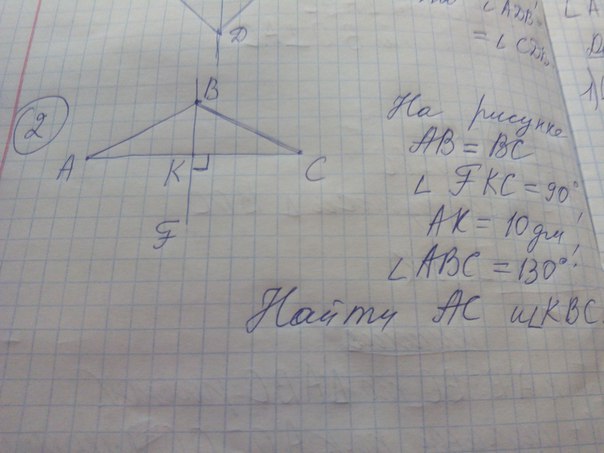 D
∠ ADB
= ∠ CD
∠ A
1)
2
B
A
K
C
F
На рисунке
AB = BC
∠ FKC = 90°
AK = 10 дм
∠ ABC = 130°
Найти AC и ∠KBC